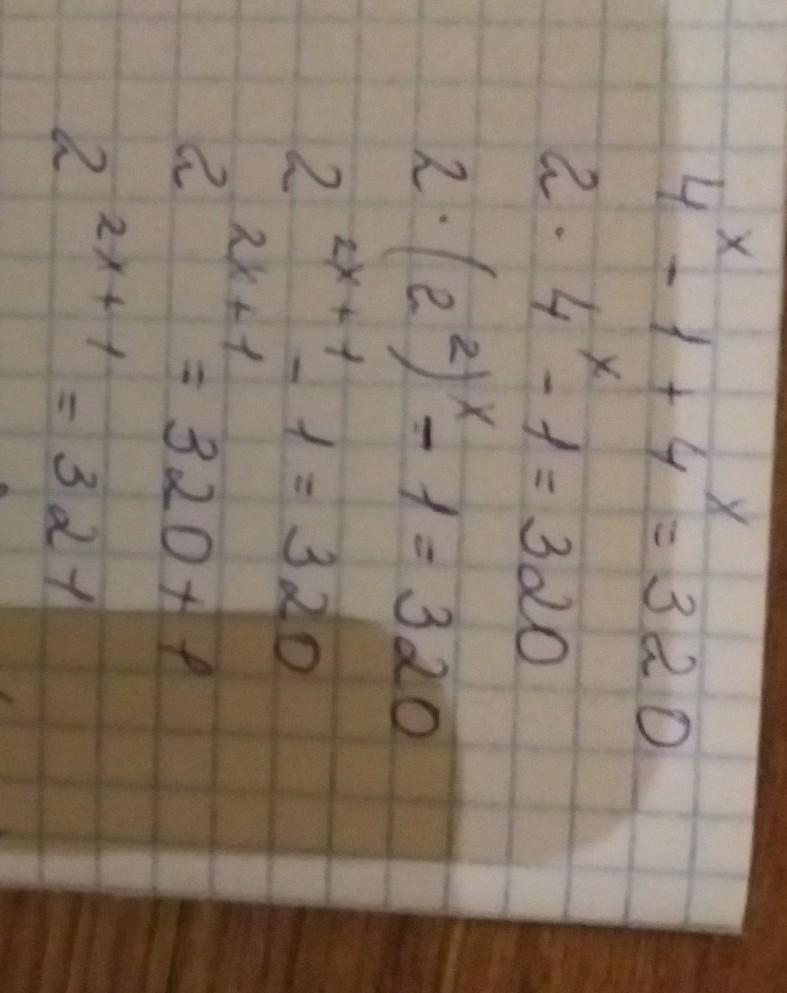 4^x - 1 + 4^x = 320
2 · 4^x - 1 = 320
2 · (2^2)^x - 1 = 320
2^2x+1 - 1 = 320
2^2x+1 = 320 + 1
2^2x+1 = 321